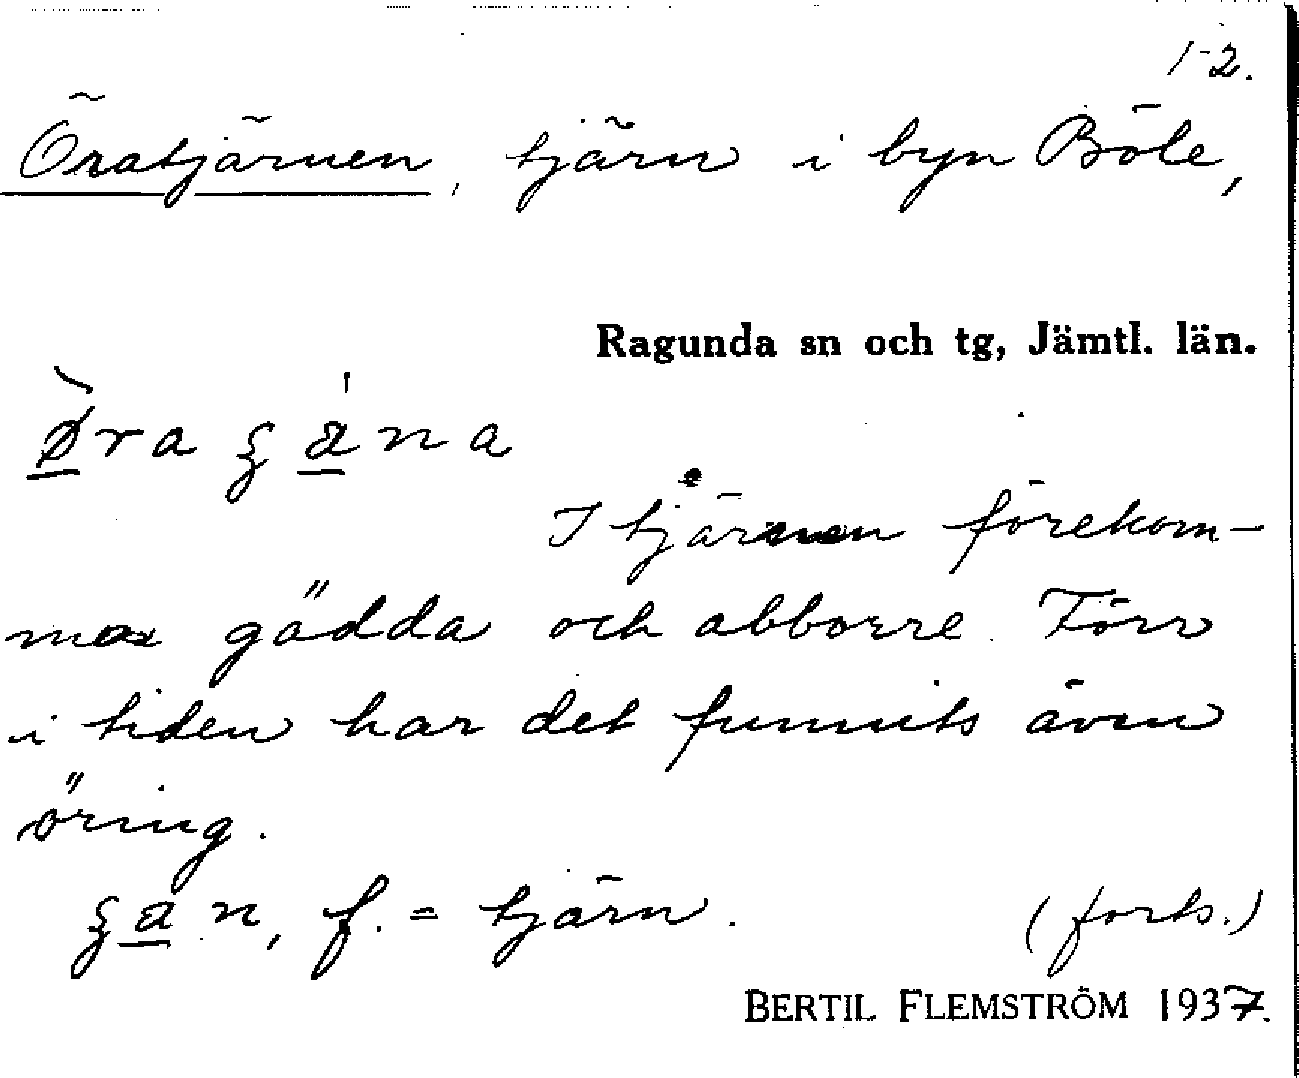 1-2.
Öratjärnen, tjärn i byn Böle,
Ragunda sn och tg, Jämtl. län.
I tjärnen förekom-
mer gädda och abborre. Förr
i tiden har det funnits även
öring.
f. = tjärn. (forts.)
BERTIL FLEMSTRÖM 1937.